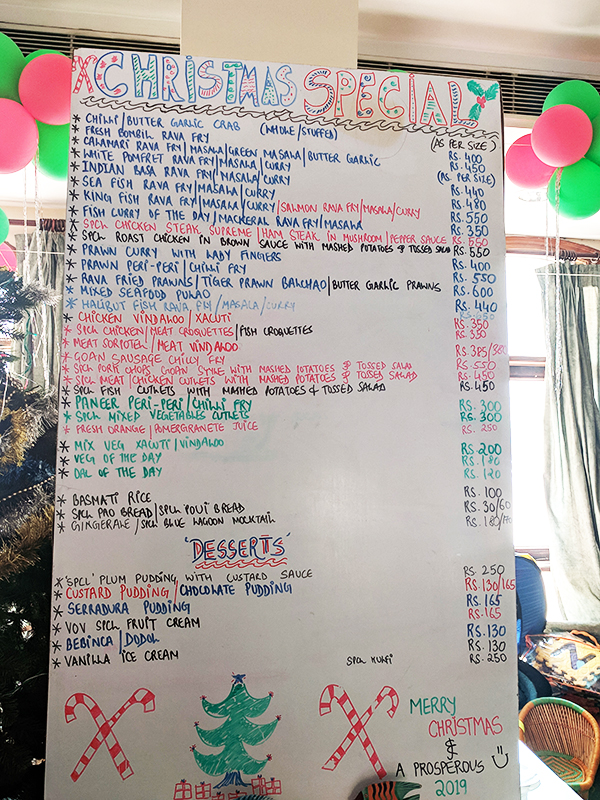 CHRISTMAS SPECIAL
* CHILLI/BUTTER GARLIC CRAB (WHOLE/STUFFED) (AS PER SIZE)
* FRESH BOMBIL RAVA FRY RS. 400
* CALAMARI RAVA FRY/MASALA/GREEN MASALA/BUTTER GARLIC RS. 450
* WHITE POMFRET RAVA FRY/MASALA/CURRY (AS PER SIZE)
* INDIAN BASA RAVA FRY/MASALA/CURRY RS. 440
* SEA FISH RAVA FRY/MASALA/CURRY RS. 480
* KING FISH RAVA FRY/MASALA/CURRY/SALMON RAVA FRY/MASALA/CURRY RS. 550
* FISH CURRY OF THE DAY/MACKERAL RAVA FRY/MASALA RS. 350
* SPCL CHICKEN STEAK SUPREME/HAM STEAK IN MUSHROOM/PEPPER SAUCE RS. 550
* SPCL ROAST CHICKEN IN BROWN SAUCE WITH MASHED POTATOES & TOSSED SALAD RS. 550
* PRAWN CURRY WITH LADY FINGERS RS. 400
* PRAWN PERI-PERI/CHILLI FRY RS. 550
* RAVA FRIED PRAWNS/TIGER PRAWN BALCHAO/BUTTER GARLIC PRAWNS RS. 600
* MIXED SEAFOOD PULAO RS. 440
* HALIBUT FISH RAVA FRY/MASALA/CURRY
* CHICKEN VINDALOO/XACUTI RS. 350
* SPCL CHICKEN/MEAT CROQUETTES/FISH CROQUETTES RS. 350
* MEAT SORPOTEL/MEAT VINDALOO RS. 385/
* GOAN SAUSAGE CHILLY FRY
* SPCL PORK CHOPS GOAN STYLE WITH MASHED POTATOES & TOSSED SALAD RS. 550
* SPCL MEAT/CHICKEN CUTLETS WITH MASHED POTATOES & TOSSED SALAD RS. 450
* SPCL FISH CUTLETS WITH MASHED POTATOES & TOSSED SALAD RS. 450
* PANEER PERI-PERI/CHILLI FRY RS. 300
* SPCL MIXED VEGETABLES CUTLETS RS. 300
* FRESH ORANGE/POMERGRANETE JUICE RS. 250
* MIX VEG XACUTI/VINDALOO RS. 200
* VEG OF THE DAY RS. 180
* DAL OF THE DAY RS. 120
* BASMATI RICE RS. 100
* SPCL PAO BREAD/SPCL POUI BREAD RS. 30/60
* GINGERALE/SPCL BLUE LAGOON MOCKTAIL RS. 180/
'DESSERTS'
* 'SPCL' PLUM PUDDING WITH CUSTARD SAUCE RS. 250
* CUSTARD PUDDING/CHOCOLATE PUDDING RS. 130/165
* SERRADURA PUDDING RS. 165
* VOV SPCL FRUIT CREAM RS. 165
* BEBINCA/DODOL RS. 130
* VANILLA ICE CREAM RS. 130
SPCL KULFI RS. 250
MERRY
CHRISTMAS
&
A PROSPEROUS
2019